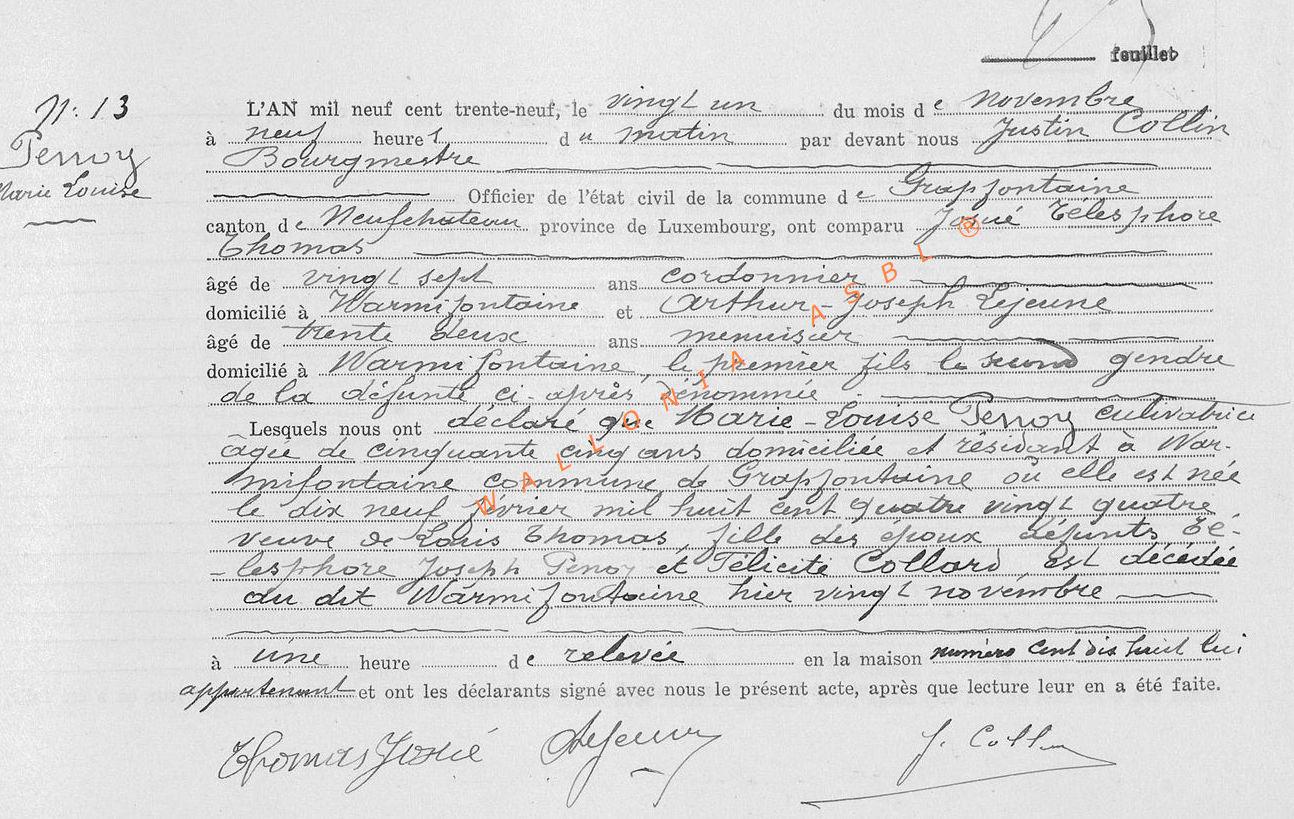 feuillet
N: 13
L'AN mil neuf cent trente-neuf, le vingt un du mois de novembre
à neuf heures du matin par devant nous Justin Collin
Perroy
Bourgmestre
Marie Louise
Officier de l'état civil de la commune de Grapfontaine
canton de Neufchateau province de Luxembourg, ont comparu Josué Télesphore
Thomas
âgé de vingt sept ans cordonnier
domicilié à Warmifontaine et Arthur-Joseph Lejeune
âgé de trente deux ans menuisier
domicilié à Warmifontaine, le premier fils le second gendre
de la défunte ci-après dénommée.
Lesquels nous ont déclaré que Marie-Louise Perroy cultivatrice
âgée de cinquante cinq ans domiciliée et résidant à War-
mifontaine commune de Grapfontaine où elle est née
le dix neuf février mil huit cent quatre vingt quatre
veuve de Louis Thomas, fille des époux défunts Té-
-lesphore Joseph Perroy et Félicité Collard est décédée
au dit Warmifontaine hier vingt novembre
à une heure de relevée en la maison numéro cent dix huit lui
appartenant et ont les déclarants signé avec nous le présent acte, après que lecture leur en a été faite.
Thomas Josué ALejeune J. Collin
WALLONIA ASBL ®